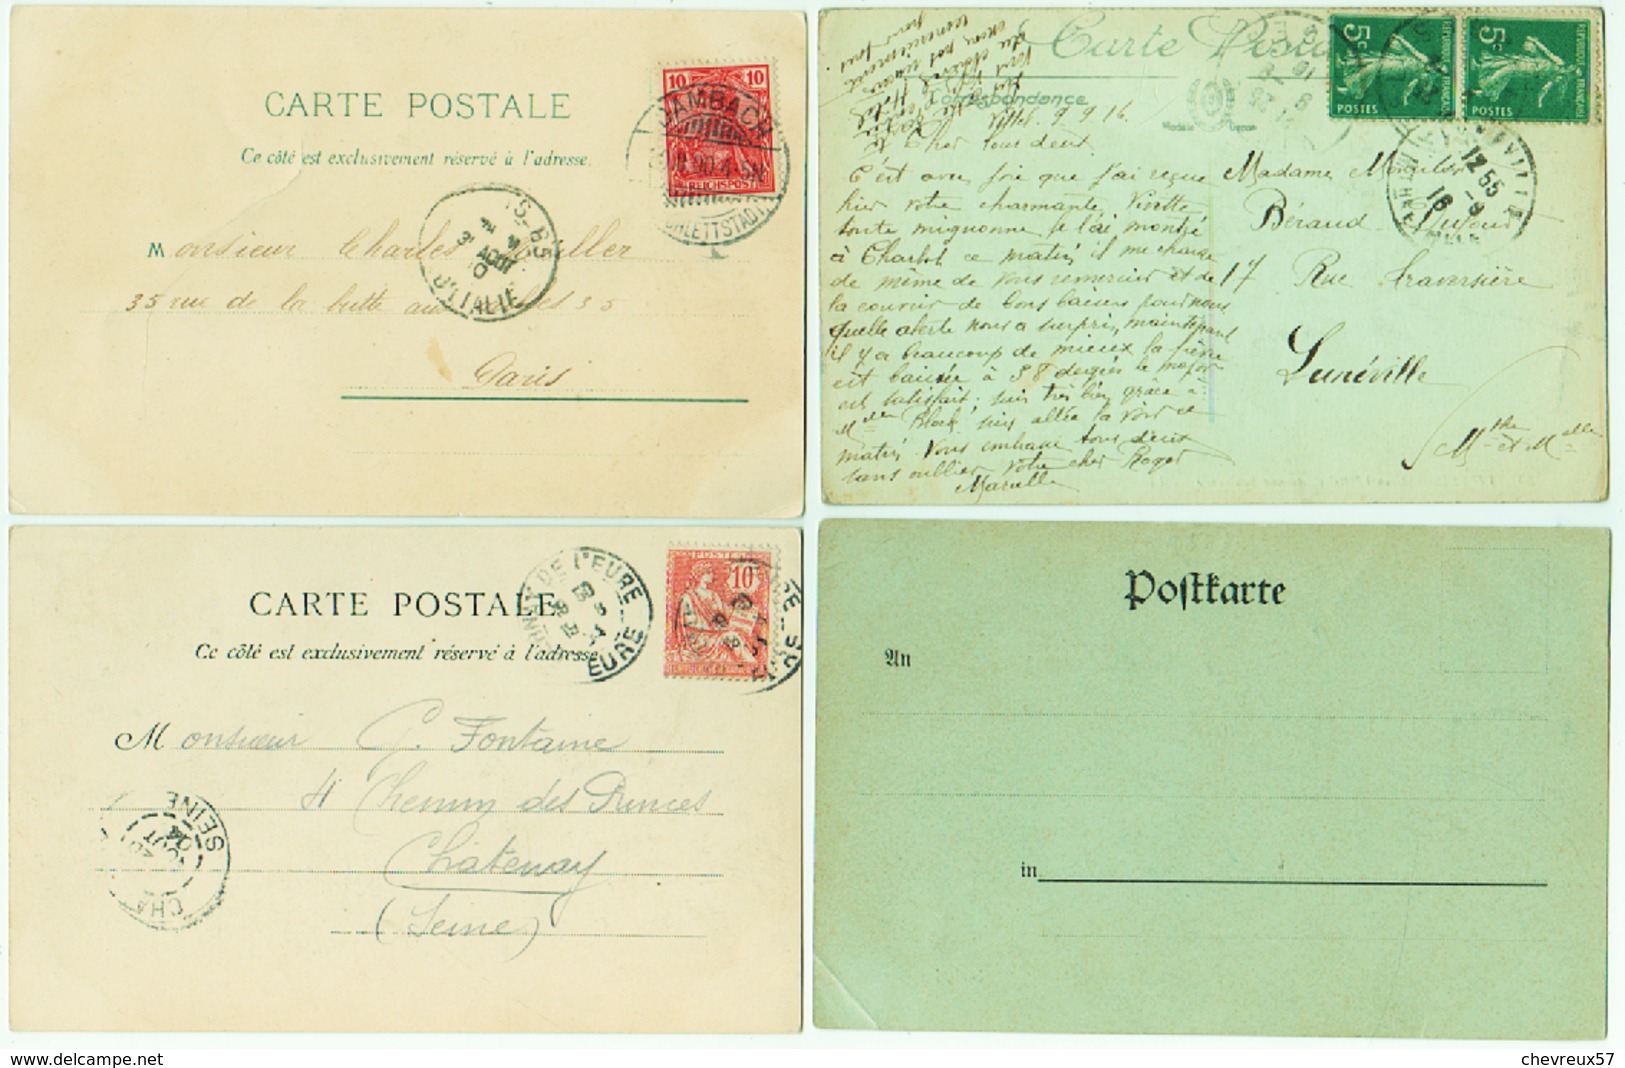 CARTE POSTALE
Ce côté est exclusivement réservé à l'adresse.
10 10
REICHSPOST
DAMBACH
SCHLETTSTADT
D'ITALIE
Monsieur Charles
35 rue de la butte aux 35
Paris
Carte Postale
Correspondance
5c 5c
POSTES POSTES
Vittel. 9.9.16.
Cher tous deux.
C'est avec joie que j'ai reçue
hier votre charmante Vivette
toute mignonne, je l'ai montré
à Charlot ce matin il me charge
de même de vous remercier et de
la couvrir de bons baisers pour nous
quelle alerte nous a surpris, maintenant
il y a beaucoup de mieux la fièvre
est baissée à 38 degrés le major
est satisfait; suis très bien grâce à
Black, suis allée la voir ce
matin. Vous embrasse tous deux
sans oublier votre cher Roger
Marcelle
Madame
Béraud
17 Rue Traversière
Lunéville
12 55
CARTE POSTALE
Ce côté est exclusivement réservé à l'adresse
POSTES 10
DE L'EURE
EURE
Monsieur G. Fontaine
4 Chemin des Princes
Châtenay
(Seine)
SEINE
CHA
Postkarte
An
in
http://www.delcampe.net
chevreux57